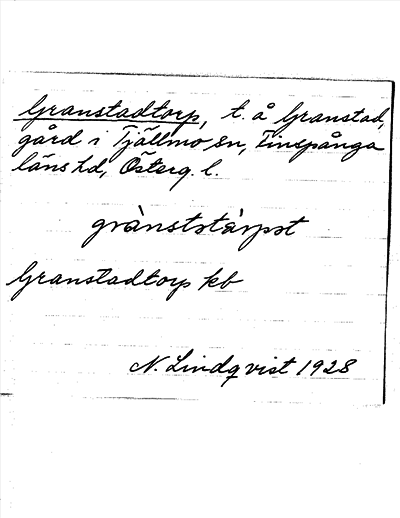 Granstadtorp, t. å Granstad,
gård i Tjällmo sn, Finspånga
läns hd, Österg. l.
grànststàrpst
Granstadtorp kb
N. Lindqvist 1928